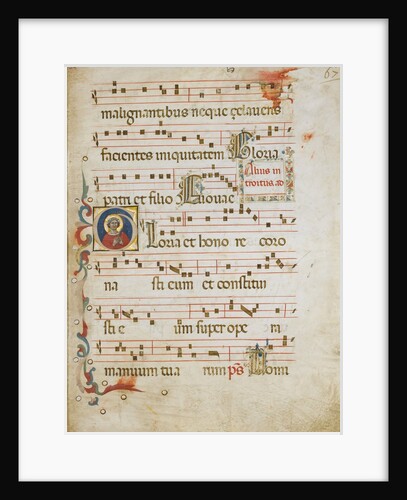 67
malignantibus neque zelaveris
facientes iniquitatem Gloria
Alius in
troitus ad
patri et filio Euouae
Gloria et hono re coro
na sti eum et constitui
sti e um super ope ra
manuum tua rum ps Domi